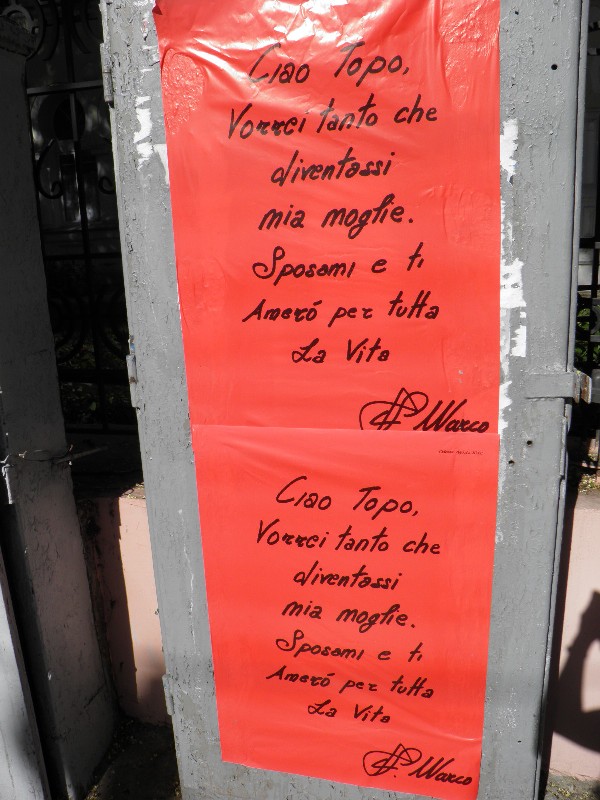 Ciao Topo,
Vorrei tanto che
diventassi
mia moglie.
Sposami e ti
Ameró per tutta
La Vita
Marco
Ciao Topo,
Vorrei tanto che
diventassi
mia moglie.
Sposami e ti
Ameró per tutta
La Vita
Marco